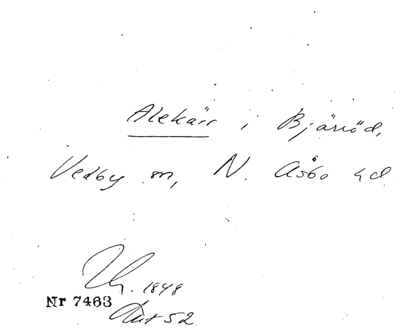 Alekärr i Bjärröd,
Vedby sn, N. Åsbo hd
1848
Nr 7463
Akt 52